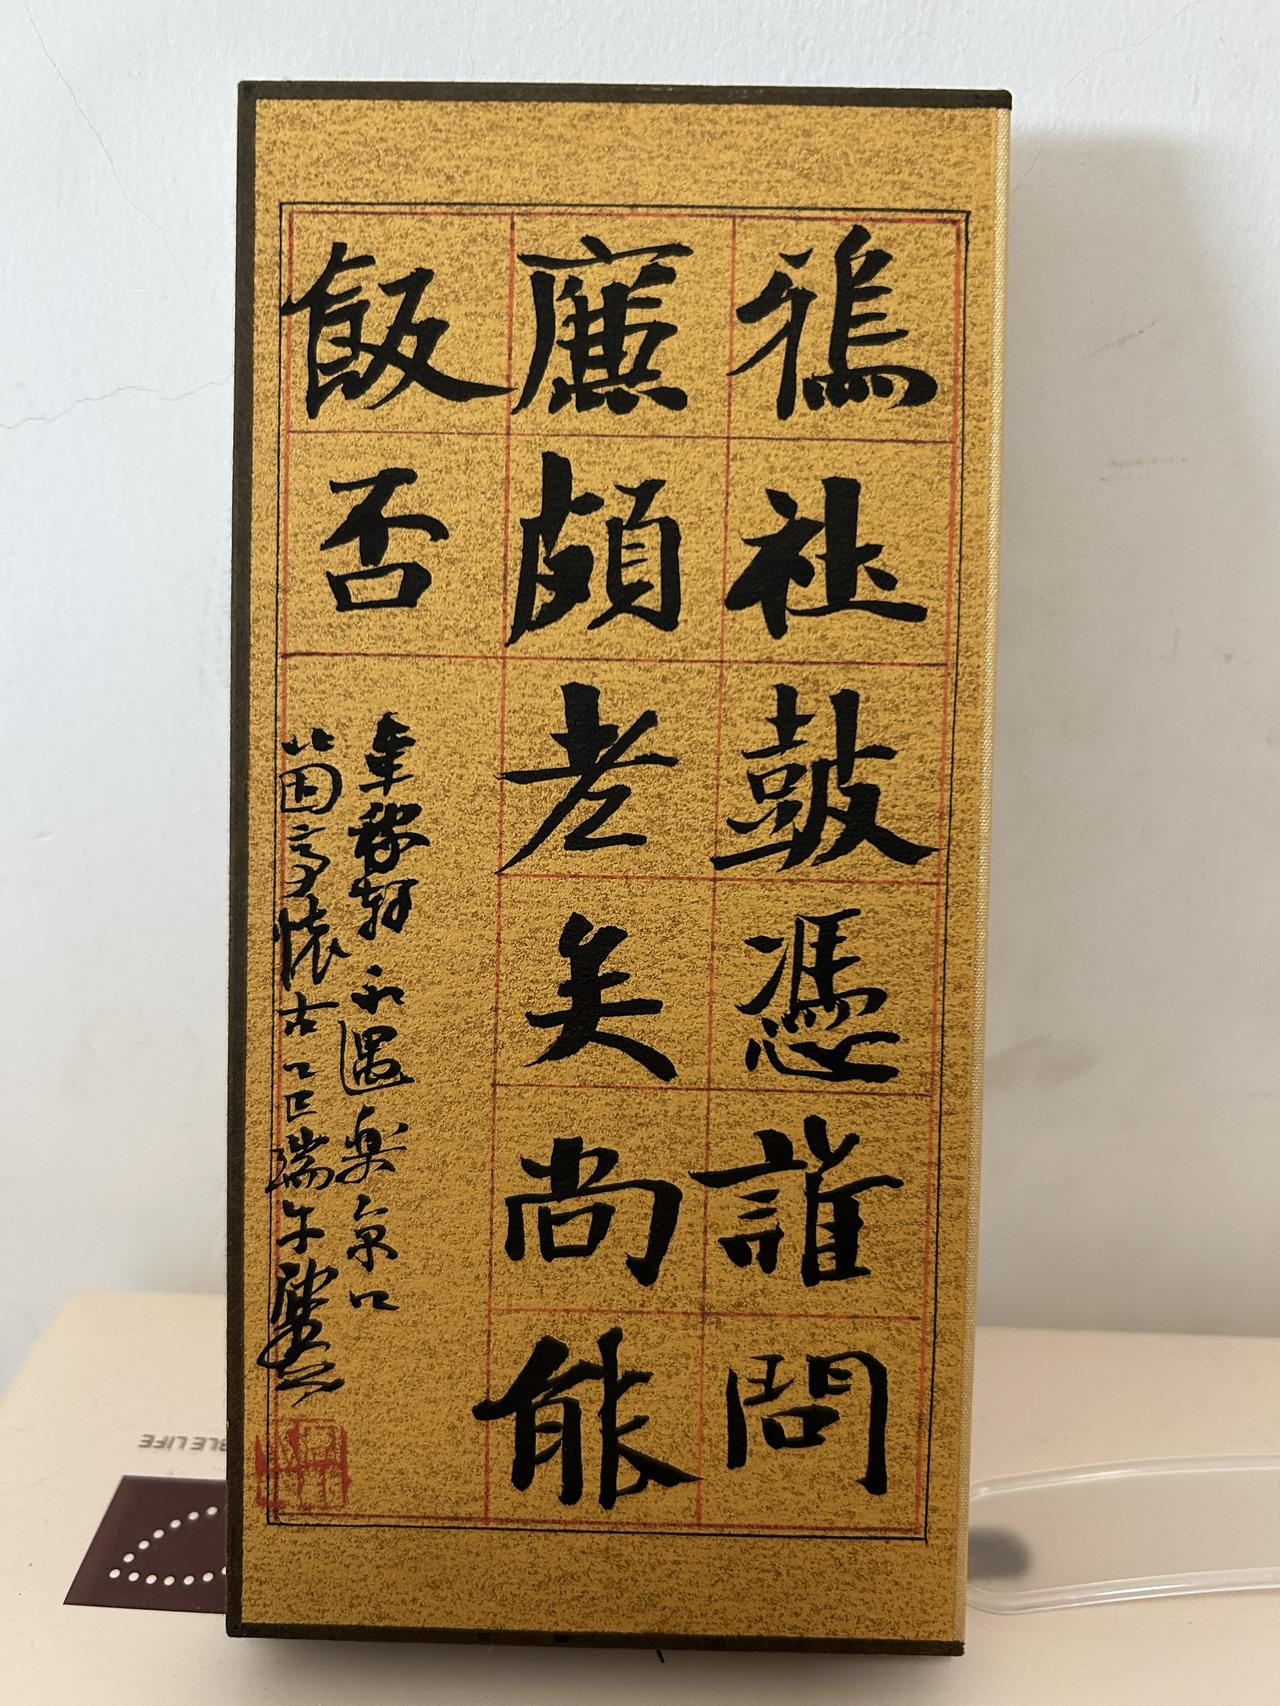 鴉社鼓憑誰問
廉頗老矣尚能
飯否
辛稼軒永遇楽京口
北固亭懷古乙巳端午
BLE LIFE